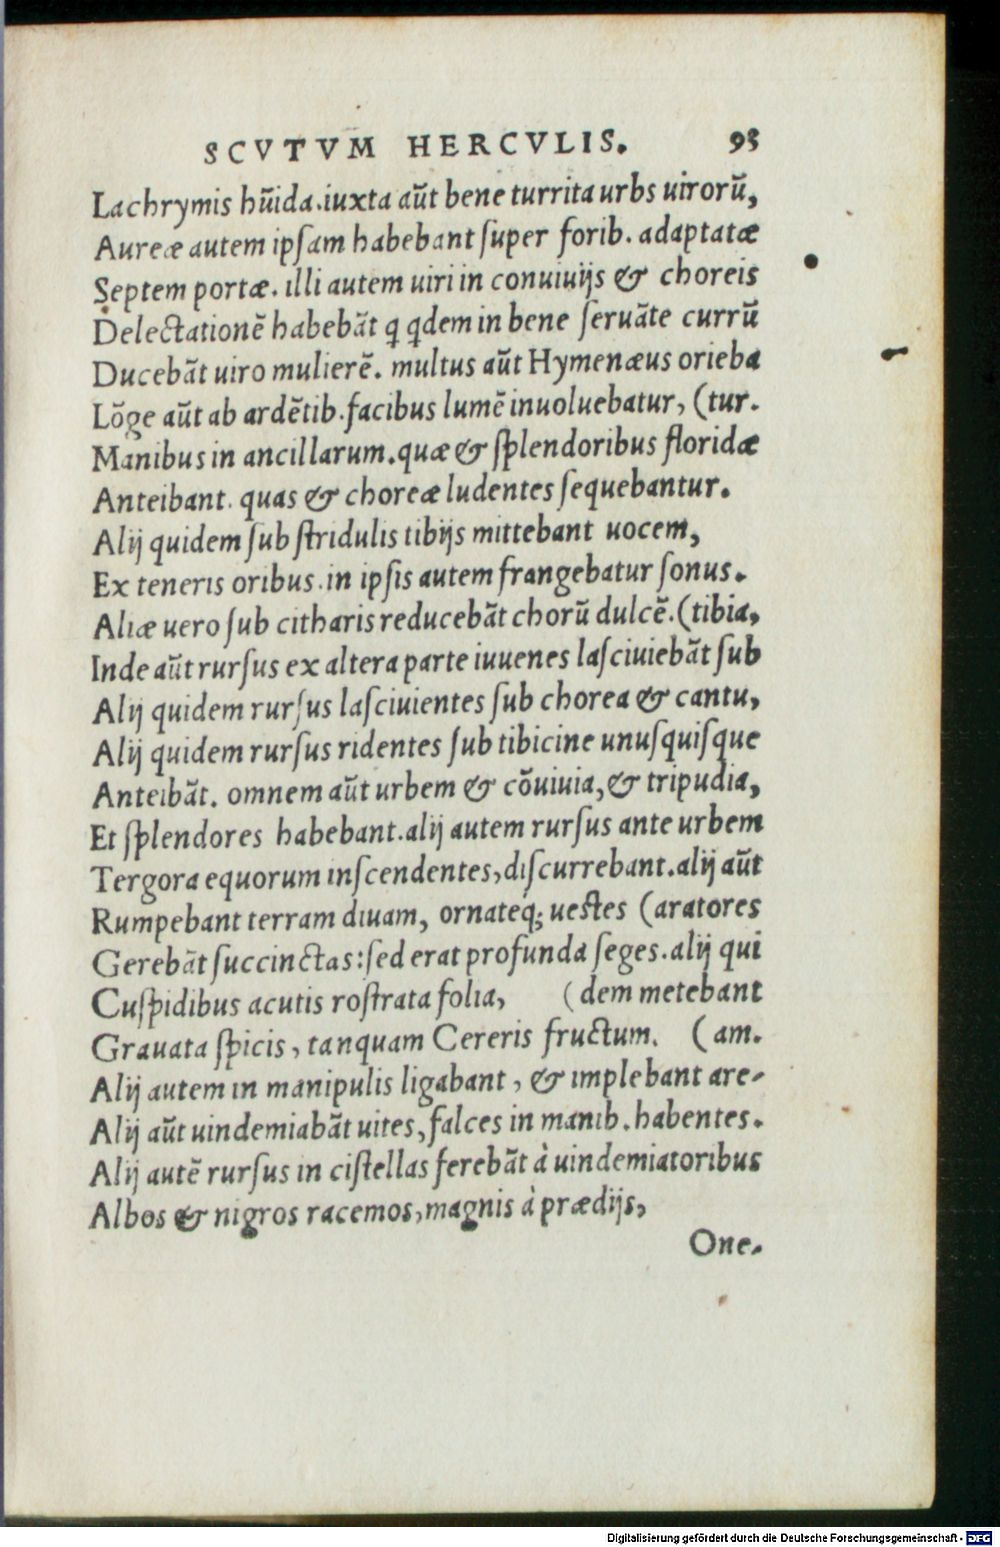 SCVTVM HERCVLIS. 95
Lachrymis hũida.iuxta aũt bene turrita urbs uirorũ,
Aureæ autem ipſam habebant ſuper forib. adaptatæ
Septem portæ. illi autem uiri in conuiuijs & choreis
Delectationẽ habebãt q qdem in bene ſeruãte currũ
Ducebãt uiro mulierẽ. multus aũt Hymenæus orieba
Lõge aũt ab ardẽtib.facibus lumẽ inuoluebatur, (tur.
Manibus in ancillarum.quæ & ſplendoribus floridæ
Anteibant. quas & choreæ ludentes ſequebantur.
Alij quidem ſub ſtridulis tibijs mittebant uocem,
Ex teneris oribus.in ipſis autem frangebatur ſonus.
Aliæ uero ſub citharis reducebãt chorũ dulcẽ.(tibia,
Inde aũt rurſus ex altera parte iuuenes laſciuiebãt ſub
Alij quidem rurſus laſciuientes ſub chorea & cantu,
Alij quidem rurſus ridentes ſub tibicine unuſquiſque
Anteibãt. omnem aũt urbem & cõuiuia,& tripudia,
Et ſplendores habebant.alij autem rurſus ante urbem
Tergora equorum inſcendentes,diſcurrebant.alij aũt
Rumpebant terram diuam, ornateq́; ueſtes (aratores
Gerebãt ſuccinctas:ſed erat profunda ſeges.alij qui
Cuſpidibus acutis roſtrata folia, (dem metebant
Grauata ſpicis, tanquam Cereris fructum. (am.
Alij autem in manipulis ligabant, & implebant are-
Alij aũt uindemiabãt uites,falces in manib.habentes.
Alij autẽ rurſus in ciſtellas ferebãt à uindemiatoribus
Albos & nigros racemos,magnis à prædijs,
One-
Digitalisierung gefördert durch die Deutsche Forschungsgemeinschaft - DFG